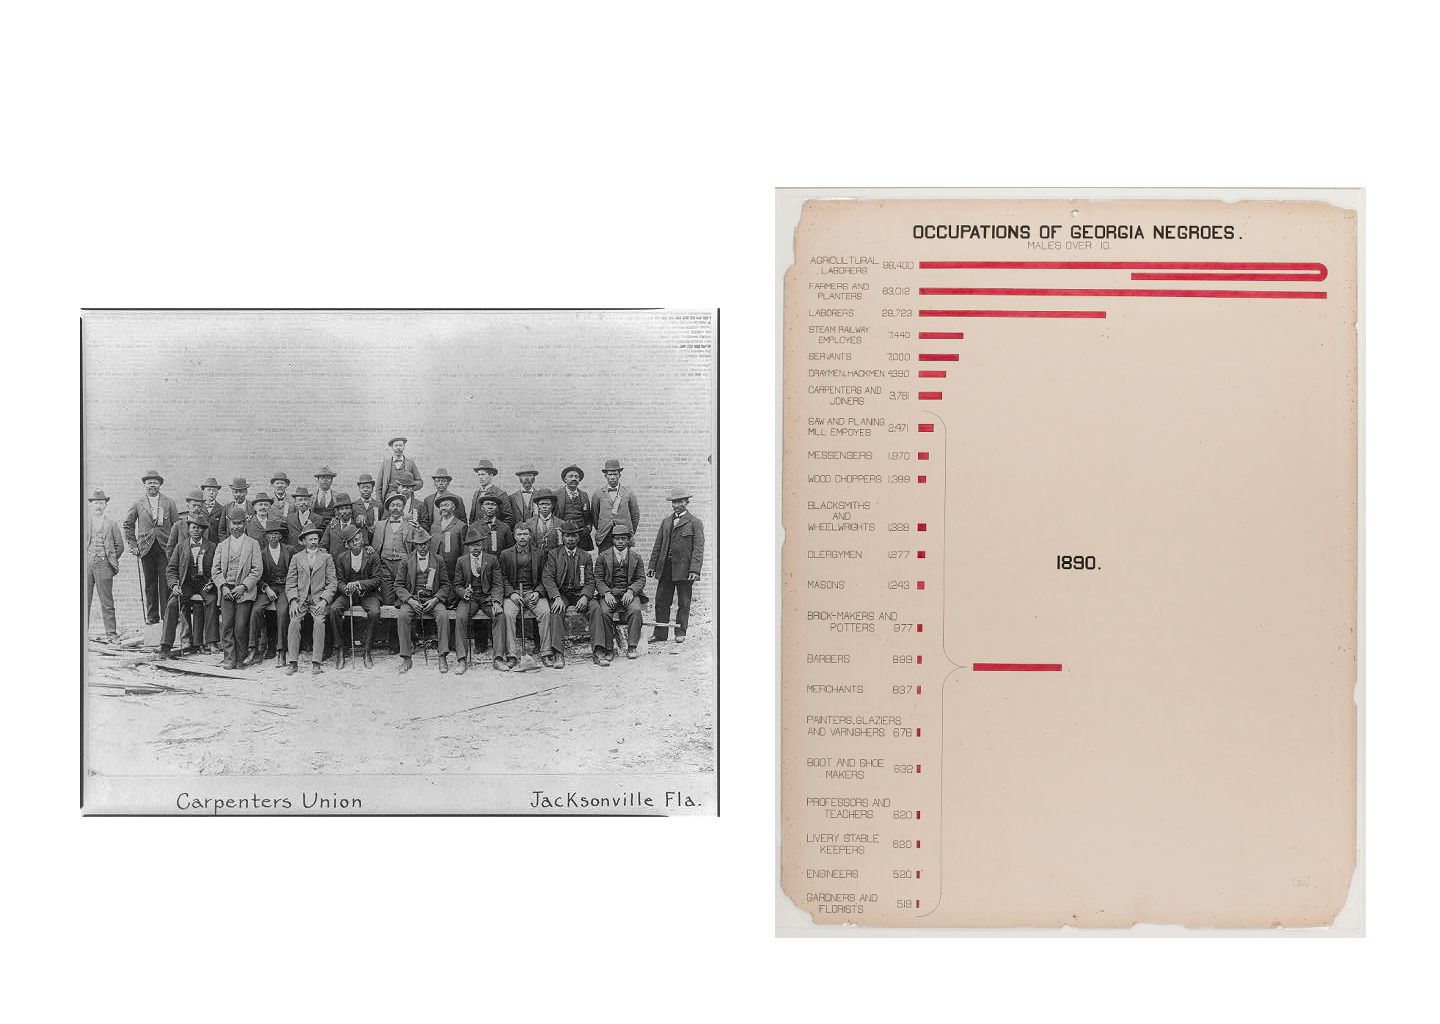 Carpenters Union
Jacksonville Fla.
OCCUPATIONS OF GEORGIA NEGROES.
MALES OVER 10.
AGRICULTURAL
LABORERS 98,400
FARMERS AND
PLANTERS 63,012
LABORERS 28,723
STEAM RAILWAY
EMPLOYES 7,440
SERVANTS 7,000
DRAYMEN, HACKMEN 4,390
CARPENTERS AND
JOINERS 3,761
SAW AND PLANING
MILL EMPOYES 2,471
MESSENGERS 1,970
WOOD CHOPPERS 1,399
BLACKSMITHS
AND
WHEELWRIGHTS 1,328
CLERGYMEN 1,277
MASONS 1,243
BRICK-MAKERS AND
POTTERS 977
BARBERS 899
MERCHANTS 637
PAINTERS, GLAZIERS
AND VARNISHERS 676
BOOT AND SHOE
MAKERS 632
PROFESSORS AND
TEACHERS 620
LIVERY STABLE
KEEPERS 620
ENGINEERS 520
GARDNERS AND
FLORISTS 519
1890.